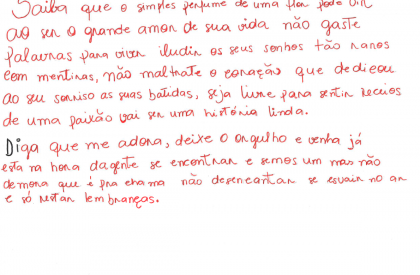 Saiba que o simples perfume de uma flor pode vir
ao ser o grande amor de sua vida não gaste
palavras para viver iludir os seus sonhos tão raros
com mentiras, não maltrate o coração que dedicou
ao seu sorriso as suas batidas, seja livre para sentir receios
de uma paixão vai ser uma história linda.
Diga que me adora, deixe o orgulho e venha já
esta na hora dagente se encontrar e sermos um mas não
demora que é pra chama não desencantar se esvair no ar
e só restar lembranças.